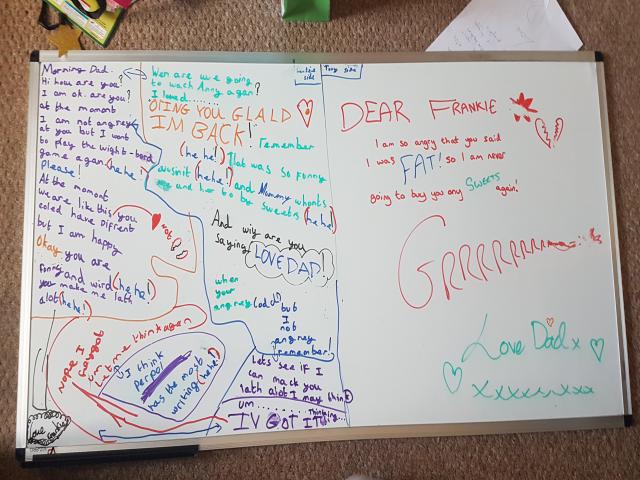 Morning Dad.
Hi how are you?
I am ok. are you?
at the momant
I am not angrey
at you but I wont
to play the wight-bord
game agan. (hehe!)
please!
At the momont
we are like this you
coled have Diffrent
but I am happy
Okay you are
Funny and wird (hehe!)
you make me lath
alot (hehe!)
not
Wen are we going
to wach Anny agan?
I loved........
OING YOU GLALD
IM BACK!
remember
(he he!) That was so fonny
wusinit (hehe!) and Mummy whonts
and her bo by sweets (hehe!)
And wiy are you
saying LOVE DAD!
when
your
angrey
(Dad)
but
I
not
angrey
remember!
Lets see if I
can mack you
lath alot I may think
um........ Thinking...
IV GOT IT!
nope I
forgot
Let me think agen
I think
perpol
has the most
writing (hehe!)
Love
Frankie
side
Tony side
DEAR FRANKIE
I am so angry that you said
I was FAT! so I am never
going to buy you any SWEETS again!
GRRRRRRRRR
Love Dad x
xxxxxxxxx